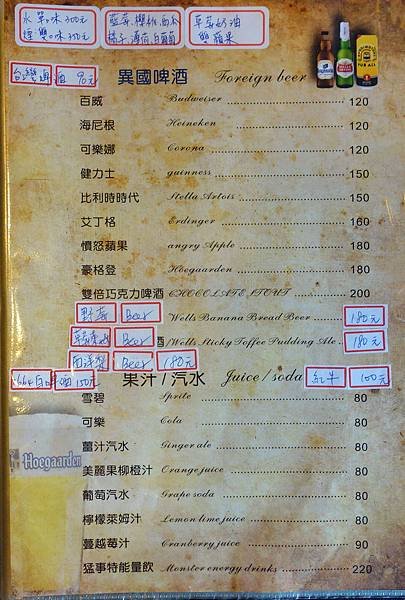 水 單口味 300元
煙 雙口味 350元
藍莓,櫻桃,西瓜
橘子,薄荷,白葡萄
草莓奶油
雙蘋果
台灣啤酒 90元
異國啤酒 Foreign beer
百威 Budweiser 120
海尼根 Heineken 120
可樂娜 Corona 120
健力士 guinness 150
比利時時代 Stella Artois 150
艾丁格 Erdinger 160
憤怒蘋果 angry Apple 180
豪格登 Hoegaarden 180
雙倍巧克力啤酒 CHOCOLATE STOUT 200
野莓 Beer Wells Banana Bread Beer 180元
Beer 酒 Wells Sticky Toffee Pudding Ale 180元
西洋梨 Beer 180元
1664白啤酒 150元 果汁/汽水 Juice/soda 紅牛 100元
雪碧 Sprite 80
可樂 Cola 80
薑汁汽水 Ginger ale 80
美麗果柳橙汁 Orange juice 80
葡萄汽水 Grape soda 80
檸檬萊姆汁 Lemon lime juice 80
蔓越莓汁 Cranberry juice 90
猛事特能量飲 Monster energy drinks 220
Hoegaarden